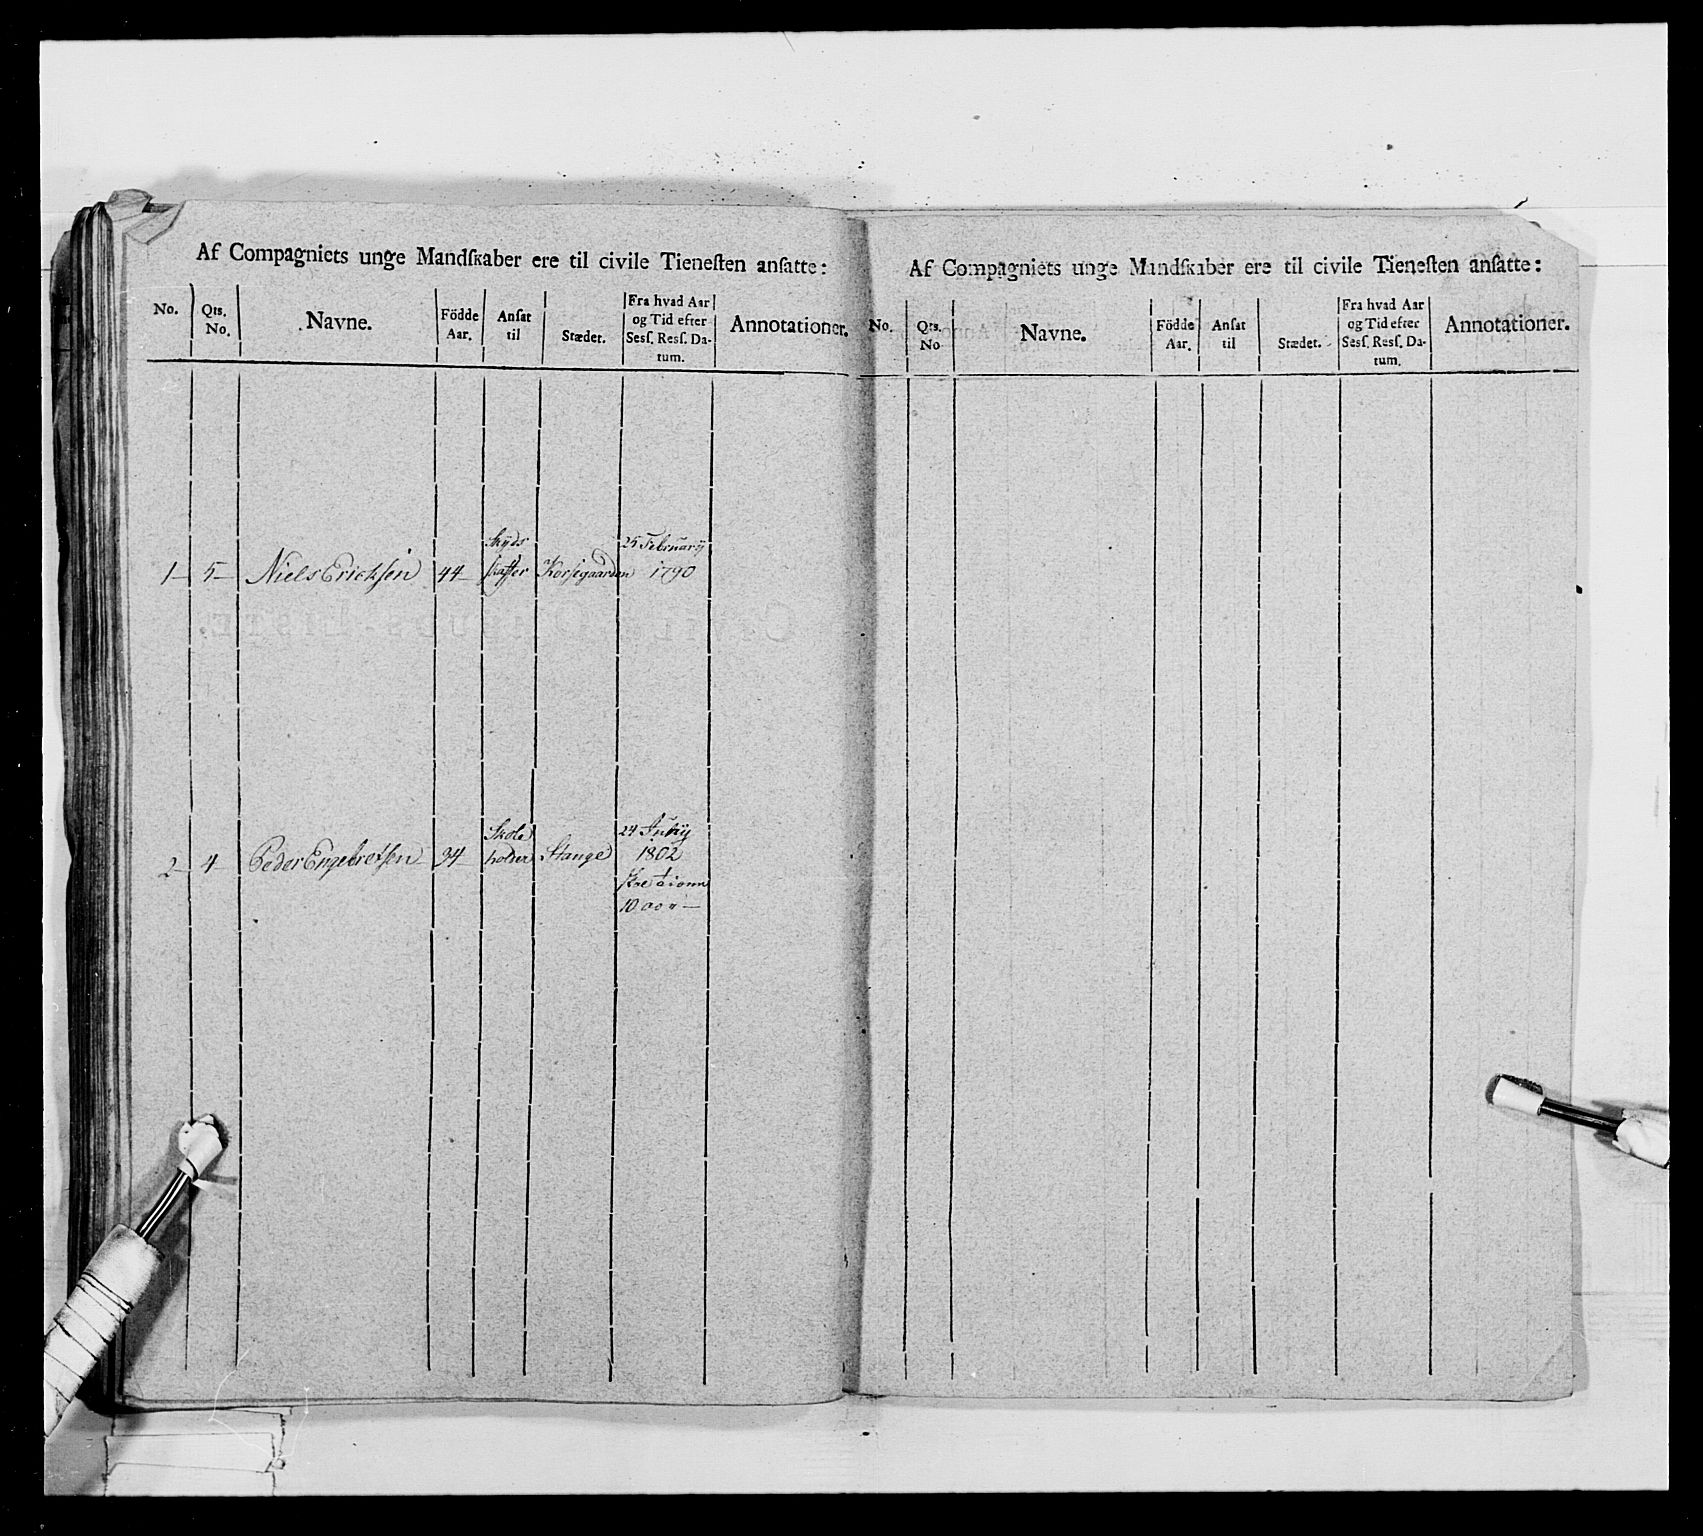 Af Compagniets unge Mandſkaber ere til civile Tieneſten anſatte:
No. Qts. No. Navne. Födde Aar. Anſat til Stædet. Fra hvad Aar og Tid efter Sesſ. Resſ. Datum. Annotationer.
1 5 Niels Erickſen 44 Skyds ſkaffer Korsegaarden 25 February 1790
2 4 Peder Engebretſen 34 Skole holder Stange 24 July 1802
Af Compagniets unge Mandſkaber ere til civile Tieneſten anſatte:
No. Qts. No Navne. Födde Aar. Anſat til Stædet. Fra hvad Aar og Tid efter Sesſ. Resſ. Datum. Annotationer.